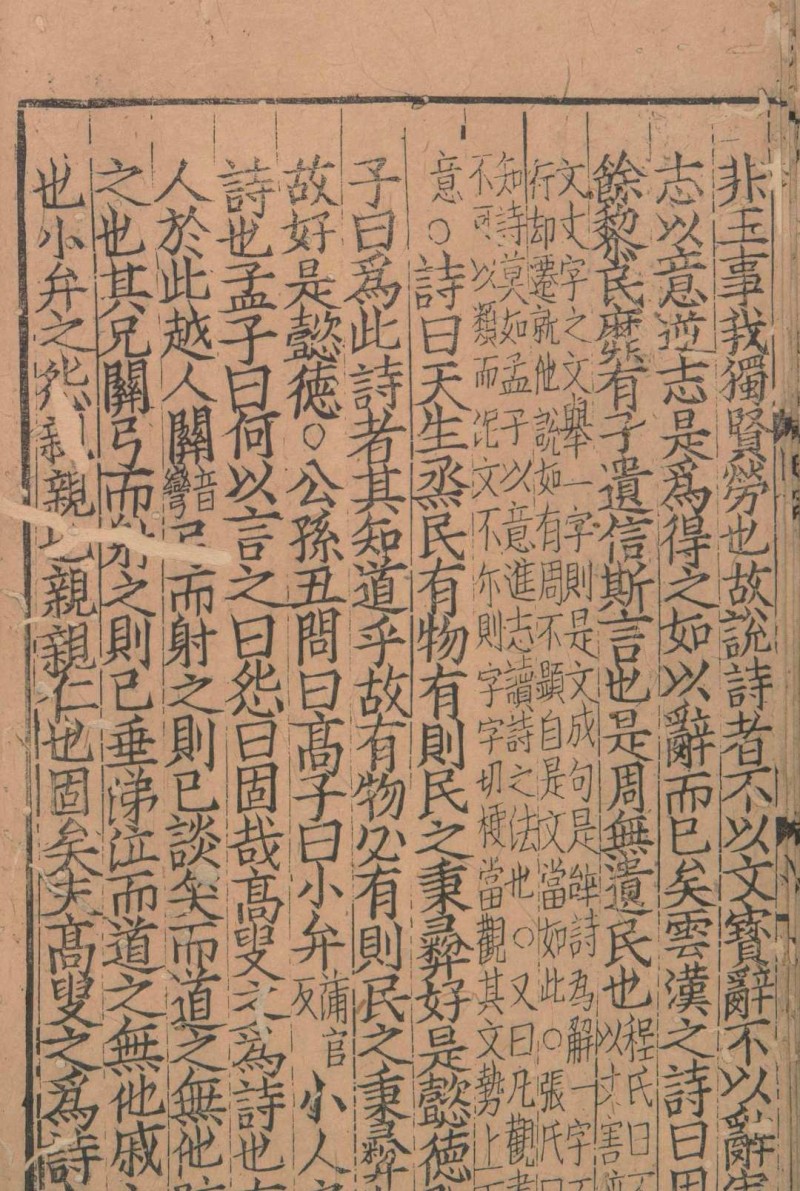 非王事我獨賢勞也故說詩者不以文害辭不以辭
志以意逆志是爲得之如以辭而已矣雲漢之詩曰周
餘黎民靡有孑遺信斯言也是周無遺民也程氏曰
以文害
文文字之文舉一字則是文成句是辭詩為解一字不
行却遷就他說如有周不顯自是文當如此○張氏曰
知詩莫如孟子以意逆志讀詩之法也○又曰凡觀書
不可以類而泥文不尔則字字相梗當觀其文勢上下
意○詩曰天生烝民有物有則民之秉彛好是懿德
子曰爲此詩者其知道乎故有物必有則民之秉彛
故好是懿德○公孫丑問曰高子曰小弁蒲官反小人
詩也孟子曰何以言之曰怨曰固哉高叟之爲詩也有
人於此越人關音彎弓而射之則已談笑而道之無他
之也其兄關弓而射之則已垂涕泣而道之無他戚
也小弁之怨親親也親親仁也固矣夫高叟之爲詩